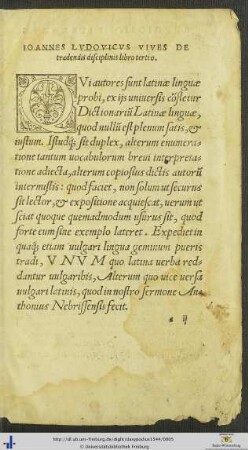 IOANNES LVDOVICVS VIVES DE
tradendis disciplinis libro tertio.
QVi autores sunt latinæ linguæ
probi, ex ijs universis cõficietur
Dictionariũ Latinæ linguæ,
quod nullũ est plenum satis, &
iustum. Istudq́; sit duplex, alterum enumera-
tione tantum uocabulorum breui interpreta-
tione adiecta, alterum copiosius dictis autorũ
intermistis: quod faciet, non solum ut securus
sit lector, & expositione acquiescat, uerum ut
sciat quoque quemadmodum usurus sit, quod
forte cum sine exemplo lateret. Expediet in
quaq́; etiam uulgari lingua geminum pueris
tradi, VNVM quo latina uerba red-
dantur uulgaribis, Alterum quo uice uersa
uulgari latinis, quod in nostro sermone Ans
thonius Nebrissensis fecit.
a ij
http://dl.ub.uni-freiburg.de/diglit/dasypodius1544/0005
© Universitätsbibliothek Freiburg